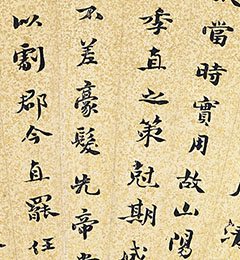 當時實用故山陽
季直之策尅期成
不差豪髮先帝
以劇郡今直罷任